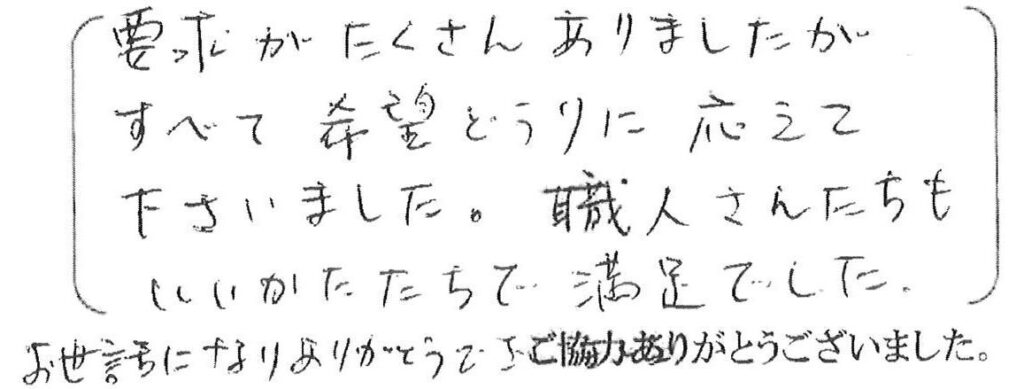 要求がたくさんありましたが
すべて希望どうりに応えて
下さいました。職人さんたちも
いいかたたちで満足でした。
お世話になりありがとうで ご協力ありがとうございました。